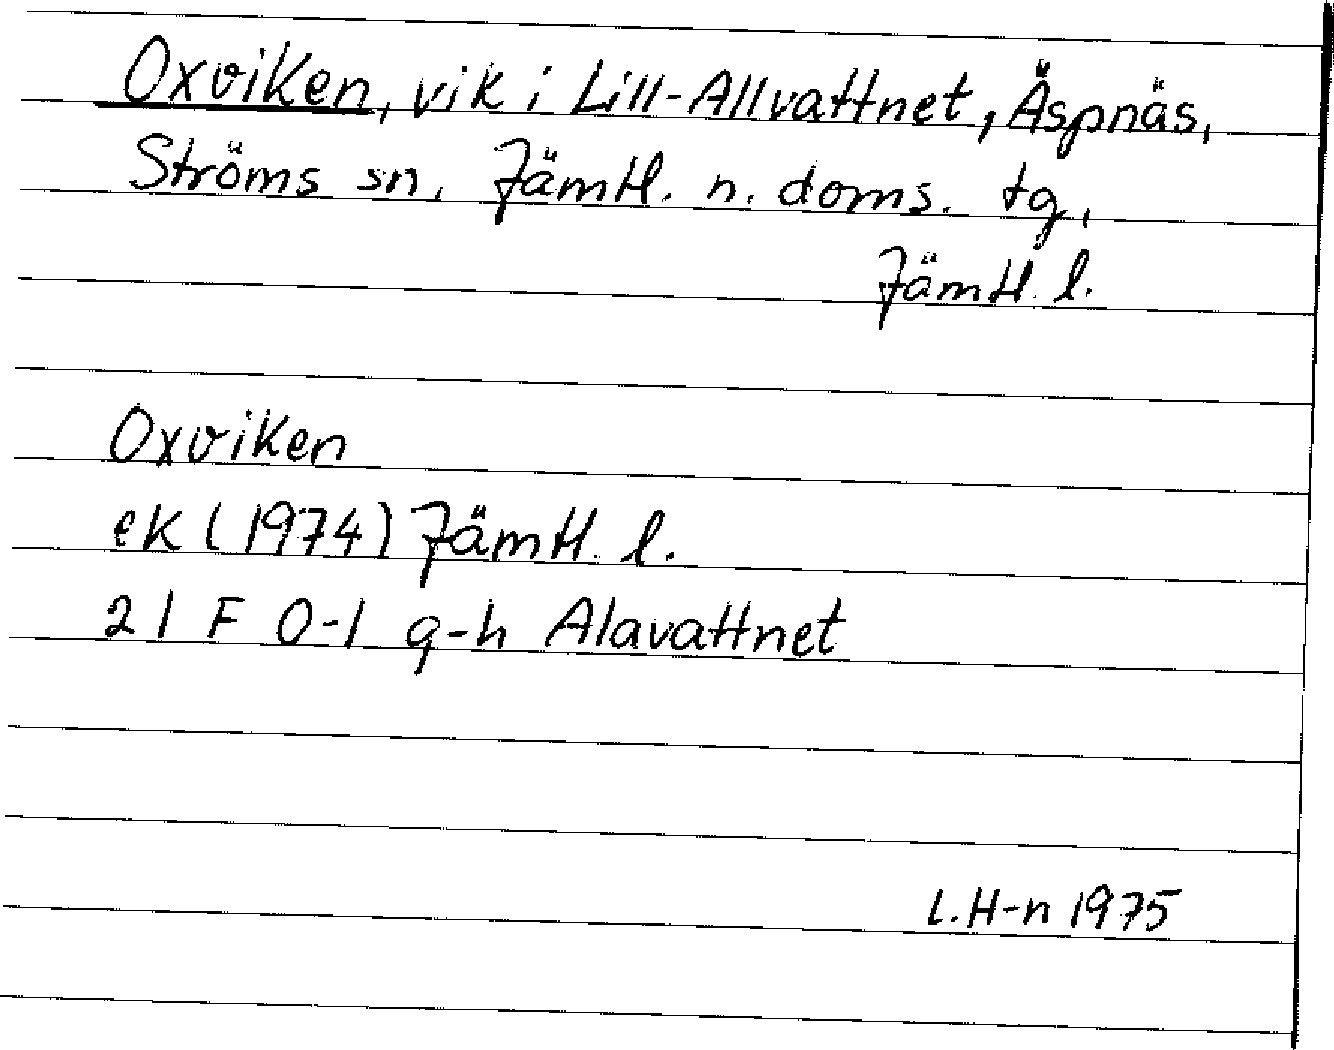 Oxviken, vik i Lill-Allvattnet, Äspnäs,
Ströms sn. Jämtl. n. doms. tg,
Jämtl. l.
Oxviken
eK (1974) Jämtl. l.
21 F 0-1 g-h Alavattnet
L.H-n 1975